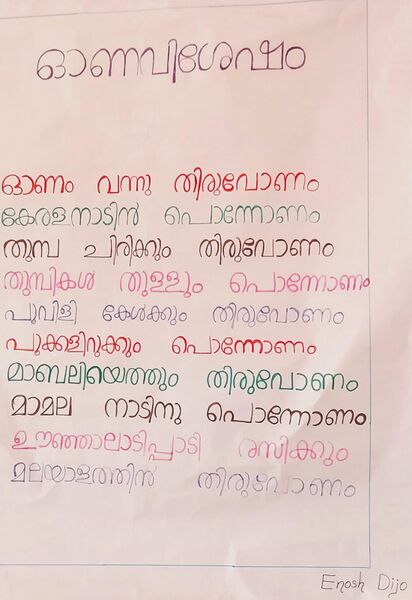 ഓണവിശേഷം
ഓണം വന്നു തിരുവോണം
കേരളനാടിൻ പൊന്നോണം
തുമ്പ ചിരിക്കും തിരുവോണം
തുമ്പികൾ തുള്ളും പൊന്നോണം
പൂവിളി കേൾക്കും തിരുവോണം
പൂക്കളിറുക്കും പൊന്നോണം
മാബലിയെത്തും തിരുവോണം
മാമല നാടിനു പൊന്നോണം
ഊഞ്ഞാലാടിപ്പാടി രസിക്കും
മലയാളത്തിൻ തിരുവോണം
Enosh Dijo